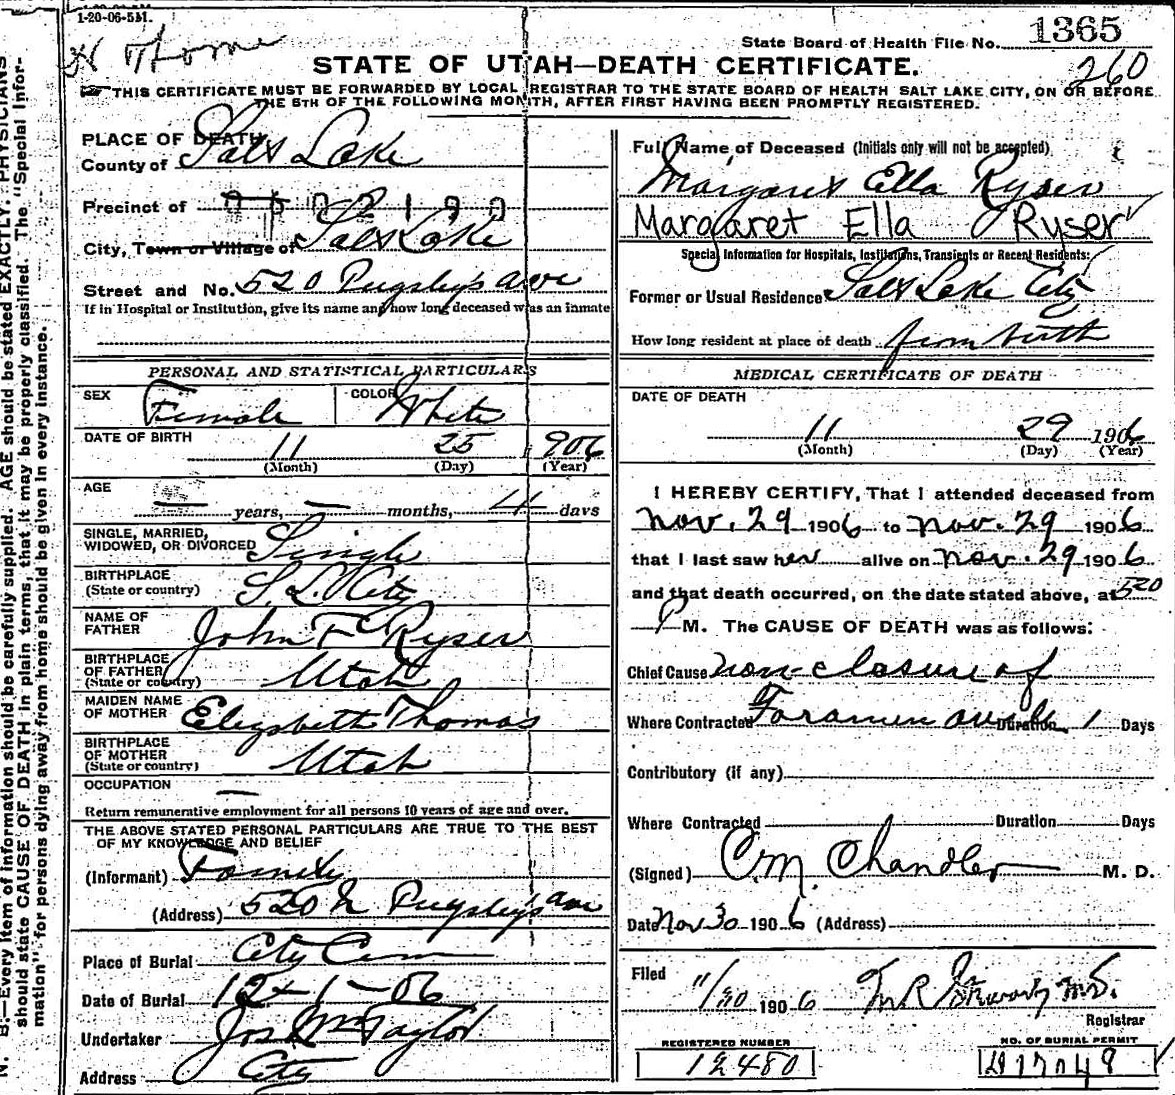 1-20-06-5M.
State Board of Health File No. 1365
260
STATE OF UTAH—DEATH CERTIFICATE.
THIS CERTIFICATE MUST BE FORWARDED BY LOCAL REGISTRAR TO THE STATE BOARD OF HEALTH SALT LAKE CITY, ON OR BEFORE
THE 5TH OF THE FOLLOWING MONTH, AFTER FIRST HAVING BEEN PROMPTLY REGISTERED.
PLACE OF DEATH
County of Salt Lake
Precinct of
City, Town or Village of Salt Lake
Street and No. 520 Pugsley's ave
If in Hospital or Institution, give its name and how long deceased was an inmate
PERSONAL AND STATISTICAL PARTICULARS
SEX Female COLOR White
DATE OF BIRTH 11 25 906
(Month) (Day) (Year)
AGE — years, — months, 4 days
SINGLE, MARRIED,
WIDOWED, OR DIVORCED Single
BIRTHPLACE
(State or country) S. L. City
NAME OF
FATHER John F Ryser
BIRTHPLACE
OF FATHER
(State or country) Utah
MAIDEN NAME
OF MOTHER Elizabeth Thomas
BIRTHPLACE
OF MOTHER
(State or country) Utah
OCCUPATION —
Return remunerative employment for all persons 10 years of age and over.
THE ABOVE STATED PERSONAL PARTICULARS ARE TRUE TO THE BEST
OF MY KNOWLEDGE AND BELIEF
(Informant) Family
(Address) 520 N Pugsley's ave
Place of Burial City Cem
Date of Burial 12-1-06
Undertaker Jos Wm Taylor
Address City
Full Name of Deceased (Initials only will not be accepted)
Margaret Ella Ryser
Margaret Ella Ryser
Special Information for Hospitals, Institutions, Transients or Recent Residents:
Former or Usual Residence Salt Lake City
How long resident at place of death from birth
MEDICAL CERTIFICATE OF DEATH
DATE OF DEATH
11 29 1906
(Month) (Day) (Year)
I HEREBY CERTIFY, That I attended deceased from
Nov. 29 1906 to Nov. 29 1906
that I last saw her alive on Nov. 29 1906
and that death occurred, on the date stated above, at 520
P M. The CAUSE OF DEATH was as follows:
Chief Cause non-closure of
Where Contracted Foramen ovale Duration 1 Days
Contributory (if any)
Where Contracted Duration Days
(Signed) C. M. Chandler M. D.
Date Nov 30 1906 (Address)
Filed 11/30 1906 M.D.
Registrar
REGISTERED NUMBER
12480
NO. OF BURIAL PERMIT
N. B.—Every item of information should be carefully supplied. AGE should be stated EXACTLY. PHYSICIANS
should state CAUSE OF DEATH in plain terms, that it may be properly classified. The "Special Infor-
mation" for persons dying away from home should be given in every instance.